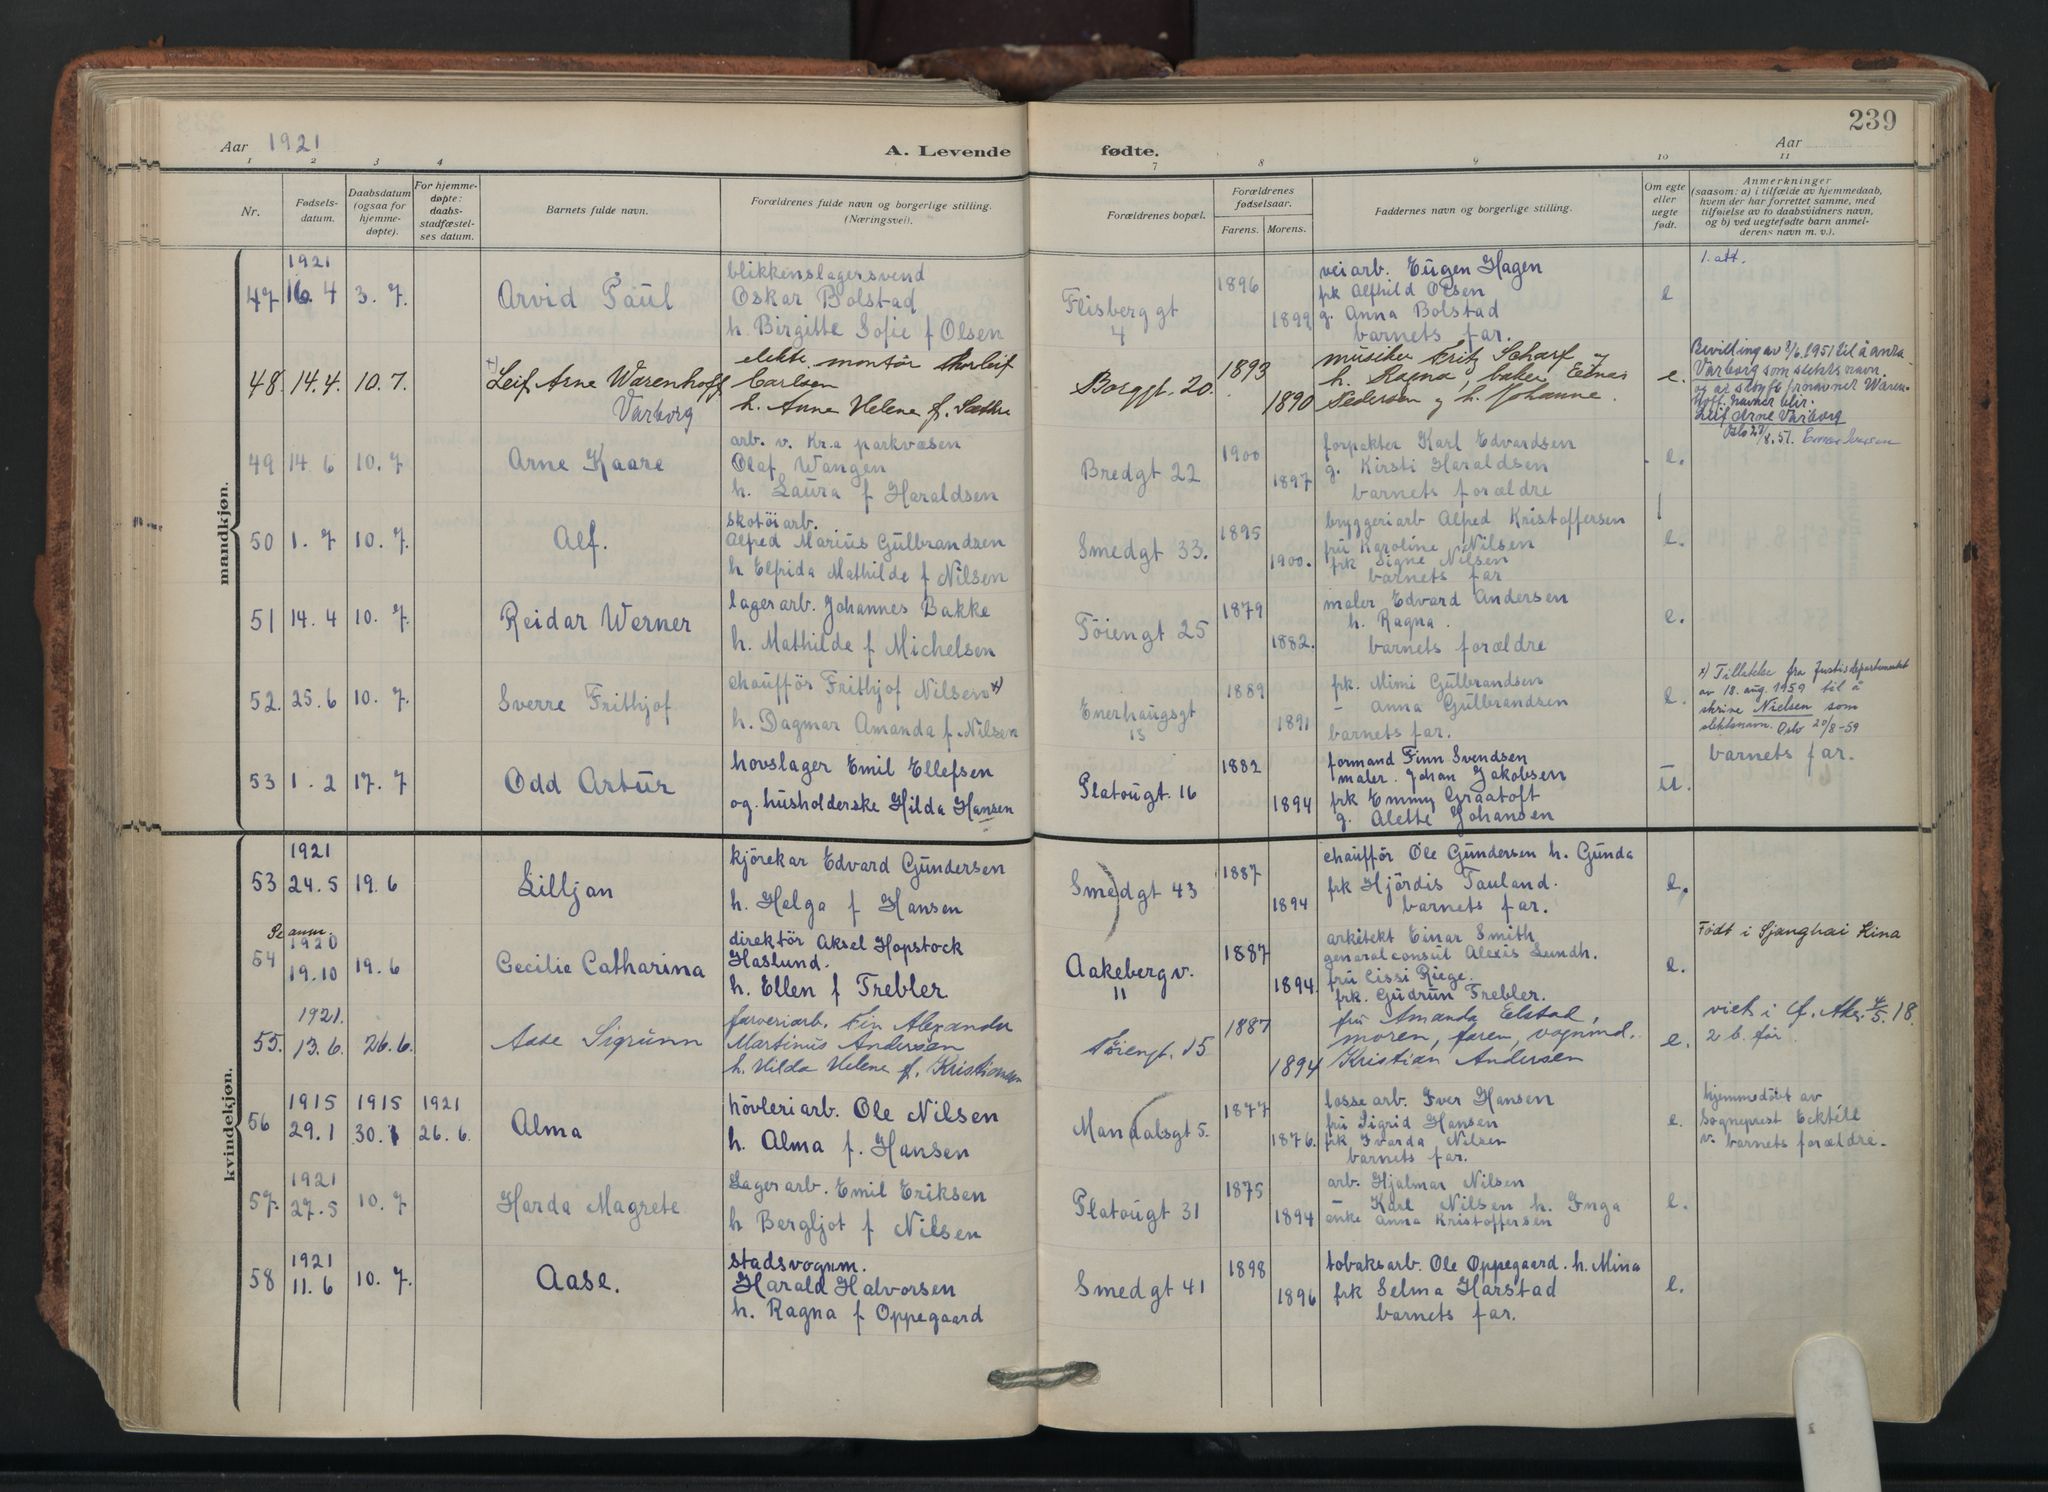 239
Aar 1921
A. Levende fødte.
Aar
1 2 3 4 7 8 9 10 11
Nr.
Fødsels-
datum.
Daabsdatum
(ogsaa for
hjemme-
døpte).
For hjemme-
døpte:
daabs-
stadfæstel-
ses datum.
Barnets fulde navn.
Forældrenes fulde navn og borgerlige stilling.
(Næringsvei).
Forældrenes bopæl.
Forældrenes
fødselsaar.
Farens. Morens.
Faddernes navn og borgerlige stilling.
Om egte
eller
uegte
født.
Anmerkninger
(saasom: a) i tilfælde av hjemmedaab,
hvem der har forrettet samme, med
tilføielse av to daabsvidners navn,
og b) ved uegtefødte barn anmel-
derens navn m. v.).
mandkjøn.
1921
47 16. 4 3. 7. Arvid Paul
blikkenslagersvend
Oskar Bolstad
h. Birgitte Sofie f Olsen
Flisberggt
4
1896
1899
veiarb. Eugen Hagen
frk Alfhild Olsen
g. Anna Bolstad
barnets far.
e
1. att.
48. 14. 4. 10. 7. Leif Arne Warenhoff
Varborg
elektr. montør Thorleif
Carlsen
h. Anne Helene f. Sæthre
Borggt. 20.
1893
1890
musiker Fritz Scharf
h. Ragna, baker
Pedersen og h. Johanne.
e.
Bevilling av 2/6.1951 til å anta
Varborg som slektsnavn
og at sløyfe fornavnet Waren-
hoff. Navnet blir
Leif Arne Varborg
Oslo 27/8.51.
49 14. 6 10. 7 Arne Kaare
arb. v. Kr.a parkvæsen
Olaf Wangen
h. Laura f Haraldsen
Bredgt 22
1900
1897
forpakter Karl Edvardsen
g. Kirsti Haraldsen
barnets forældre
e.
50 1. 7 10. 7. Alf.
skotöiarb.
Alfred Marius Gulbrandsen
h Elfrida Mathilde f Nilsen
Smedgt 33.
1895
1900.
bryggeriarb Alfred Kristoffersen
fru Karoline Nilsen
frk Signe Nilsen
barnets far
e.
51 14. 4 10. 7. Reidar Werner
lagerarb. Johannes Bakke
h. Mathilde f Michelsen
Töiengt 25
1879
1882.
maler Edvard Andersen
h. Ragna.
barnets forældre
e.
52. 25. 6 10. 7. Sverre Frithjof
chaufför Frithjof Nilsen x)
h. Dagmar Amanda f. Nilsen
Enerhaugsgt
13
1889
1891
frk. Mimi Gulbrandsen
– Anna Gulbrandsen
barnets far.
e.
x) Tillatelse fra Justisdepartementet
av 18. aug. 1959 til å
skrive Nielsen som
slektsnavn. Oslo 20/8-59
53 1. 2 17. 7 Odd Artur
hovslager Emil Ellefsen
og. husholderske Hilda Hansen
Platougt. 16
1882
1894
formand Finn Svendsen
maler. Johan Jakobsen
frk Emmy Graatoft
g. Alette Johansen
u.
barnets far.
kvindekjøn.
1921
53 24. 5 19. 6 Lilljan
kjörekar Edvard Gundersen
h. Helga f Hansen
Smedgt 43
1887
1894
chaufför Ole Gundersen h. Gunda
frk Hjördis Tauland.
barnets far.
e.
Se anm.
1920
54 19. 10 19. 6 Cecilie Catharina
direktör Aksel Hopstock
Haslund.
h. Ellen f Trebler
Aakebergv.
11
1887
1894.
arkitekt Einar Smith
generalconsul Alexis Lundh.
fru Cissi Riege.
frk. Gudrun Trebler.
e.
Født i Sjanghai Kina
1921.
55. 13. 6. 26. 6. Aase Sigrunn
farveriarb. Fin Alexander
Martinus Andersen
h. Hilda Helene f. Kristiansen
Töiengt. 15
1887
1894
fru Amanda Elstad,
moren, faren, vognmd.
Kristian Andersen
e.
viet i Gf. Aker 4/5. 18.
2 b. før
1915 1915 1921
56 29. 1 30. 1 26. 6. Alma
hövleriarb. Ole Nilsen
h. Alma f. Hansen
Mandalsgt 5.
1877
1876.
lossearb. Iver Hansen
fru Sigrid Hansen
frk Ivarda Nilsen
barnets far.
e.
hjemmedöbt av
Sogneprest Ecktell
v. barnets forældre.
1921
57. 27. 5 10. 7 Harda Magrete
Lagerarb. Emil Eriksen
h Bergljot f Nilsen
Platougt 31
1875
1894
arb. Hjalmar Nilsen
Karl Nilsen h. Inga
enke Anna Kristoffersen
e.
1921
58 11. 6 10. 7. Aase.
stadsvognm.
Harald Halvorsen
h. Ragna f Oppegaard
Smedgt 41
1898
1896
tobaksarb. Ole Oppegaard. h. Mina
frk Selma Harstad
barnets far.
e.